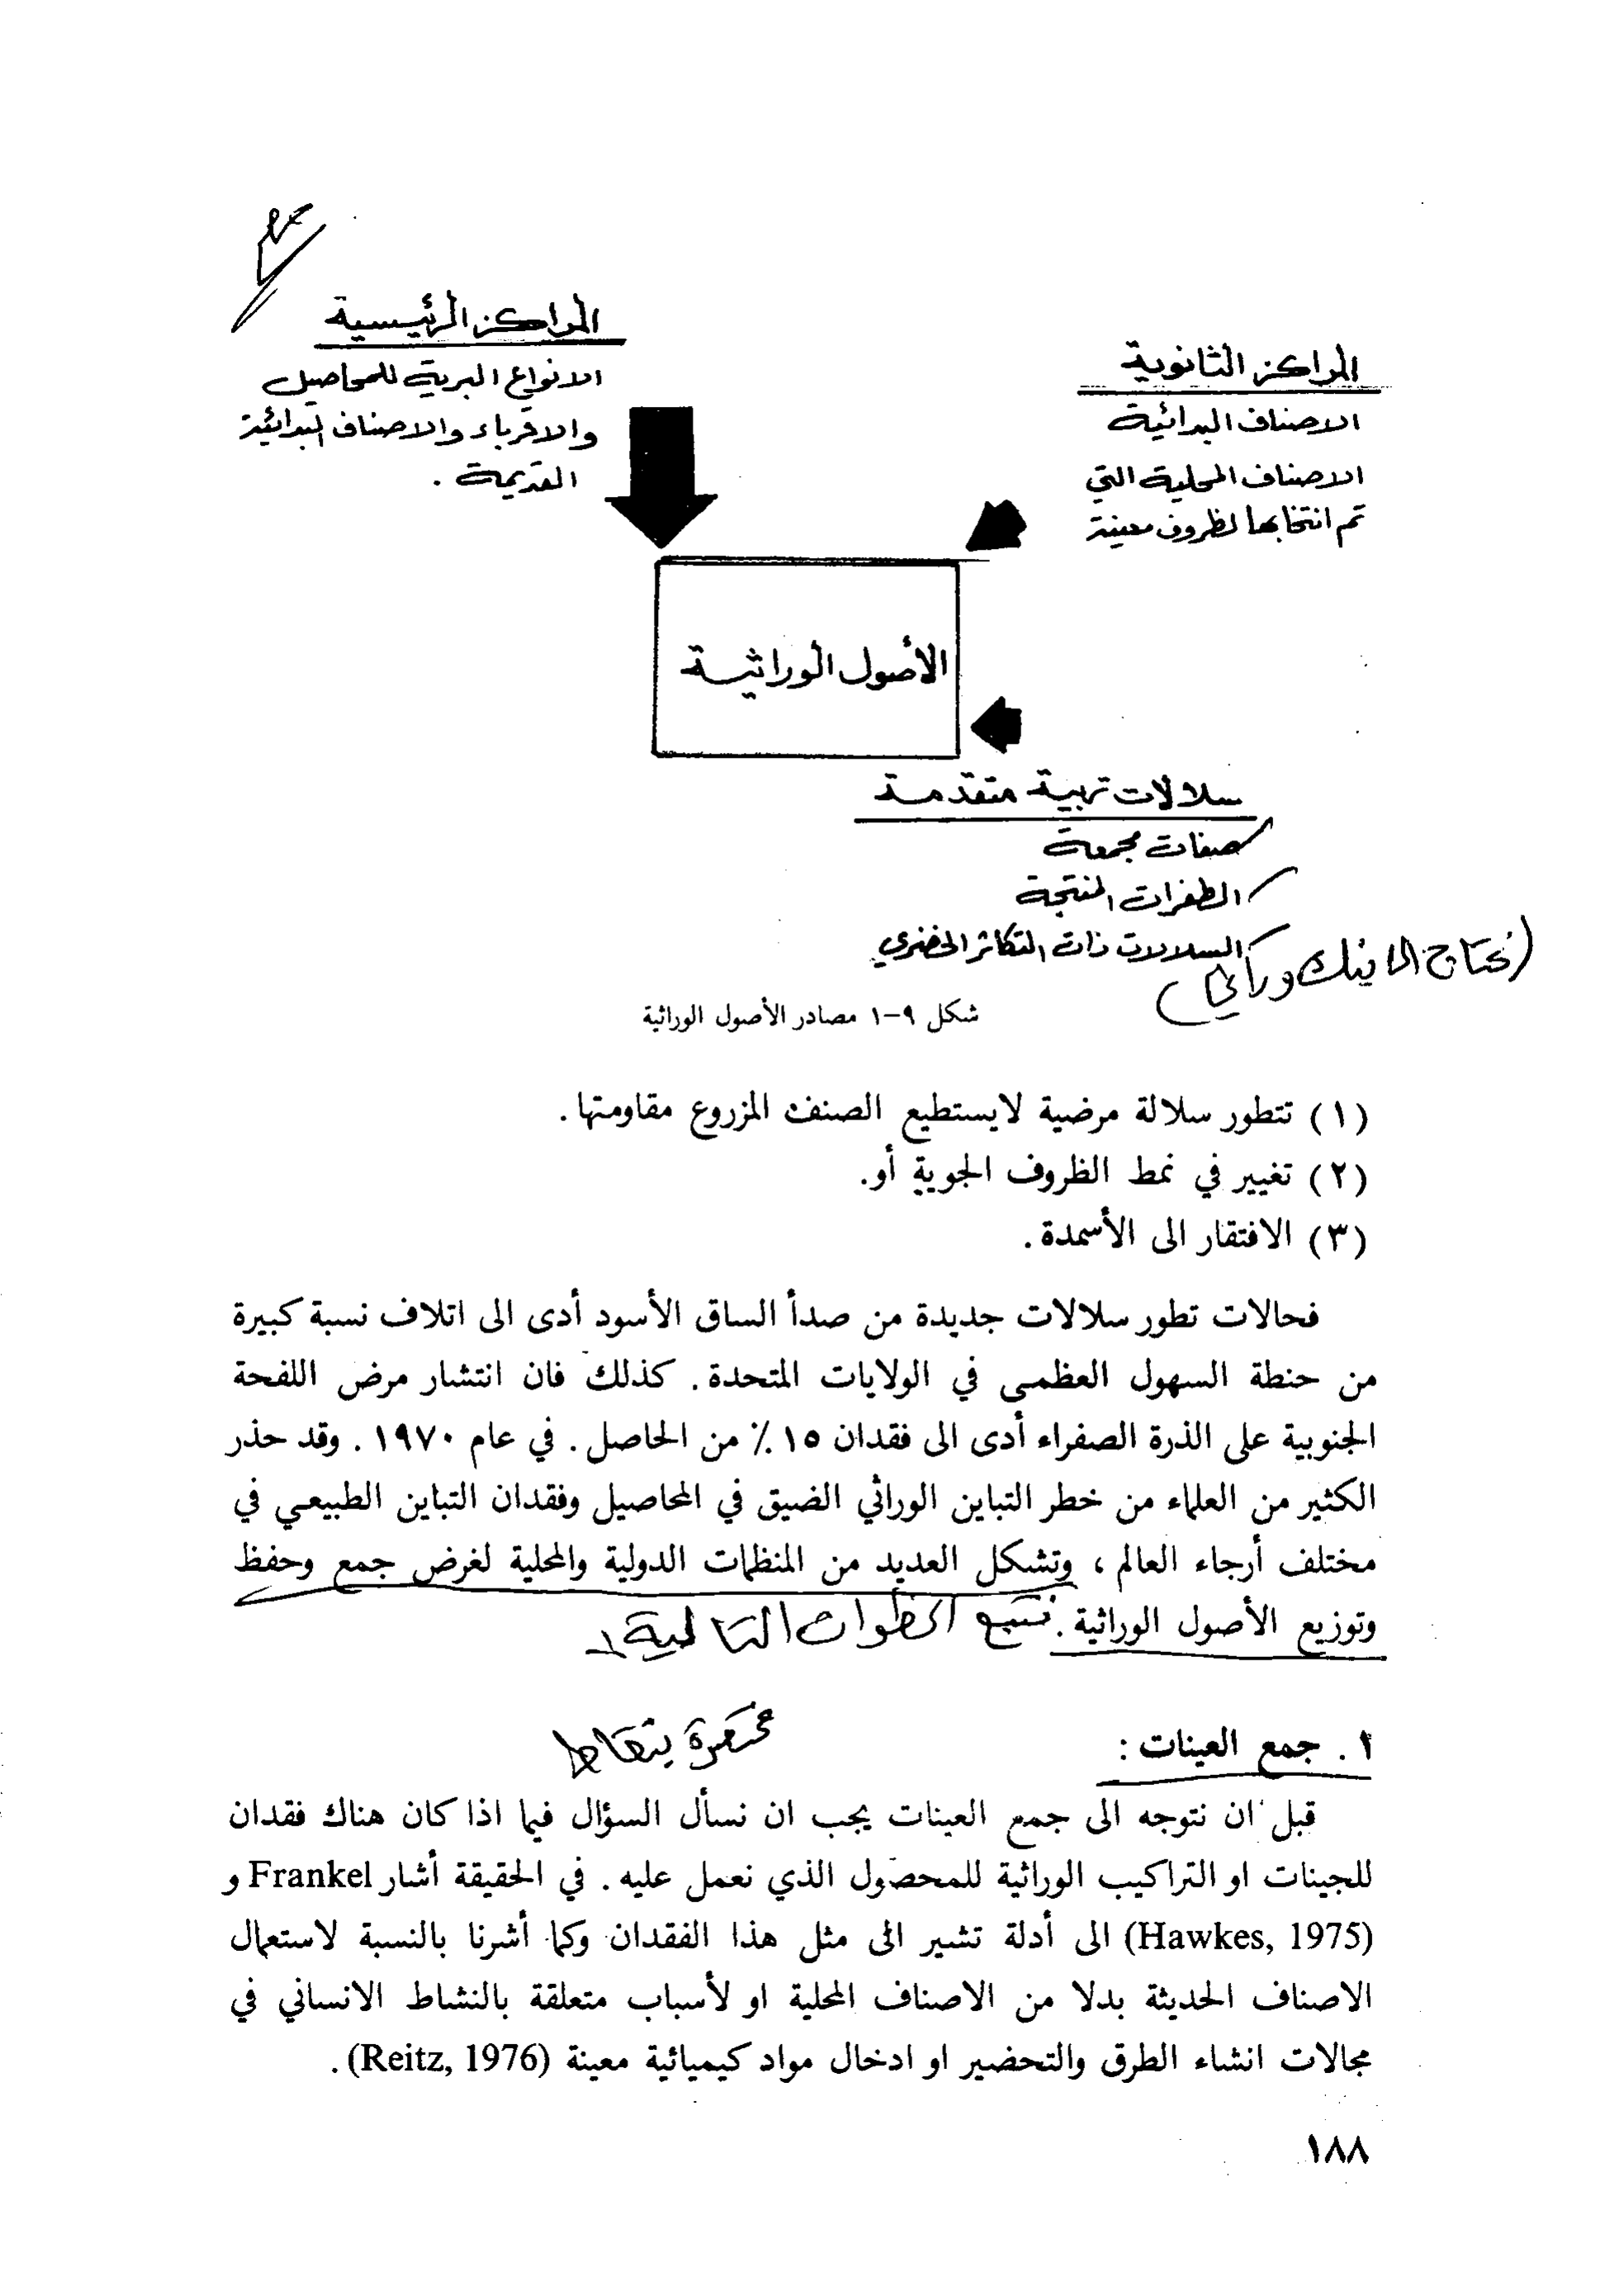 المراكز الرئيسية
الانواع البرية للمحاصيل
والاقرباء والاصناف البدائية
القديمة .
المراكز الثانوية
الاصناف البدائية
الاصناف المحلية التي
تم انتخابها لظروف معينة
الأصول الوراثية
سلالات تربية متقدمة
صفات مجمعة
الطفرات المنتجة
السلالات ذات التكاثر الخضري
(نحتاج الى بنك وراثي)
شكل ٩-١ مصادر الأصول الوراثية
(١) تتطور سلالة مرضية لايستطيع الصنف المزروع مقاومتها .
(٢) تغيير في نمط الظروف الجوية أو.
(٣) الافتقار الى الأسمدة .
فحالات تطور سلالات جديدة من صدأ الساق الأسود أدى الى اتلاف نسبة كبيرة
من حنطة السهول العظمى في الولايات المتحدة . كذلك فان انتشار مرض اللفحة
الجنوبية على الذرة الصفراء أدى الى فقدان ١٥ ٪ من الحاصل . في عام ١٩٧٠ . وقد حذر
الكثير من العلماء من خطر التباين الوراثي الضيق في المحاصيل وفقدان التباين الطبيعي في
مختلف أرجاء العالم ، وتشكل العديد من المنظمات الدولية والمحلية لغرض جمع وحفظ
وتوزيع الأصول الوراثية . نتبع الخطوات التالية :-
١ . جمع العينات :
مختصرة بنقاط
قبل ان نتوجه الى جمع العينات يجب ان نسأل السؤال فيما اذا كان هناك فقدان
للجينات او التراكيب الوراثية للمحصول الذي نعمل عليه . في الحقيقة أشار Frankel و
(Hawkes, 1975) الى أدلة تشير الى مثل هذا الفقدان وكما أشرنا بالنسبة لاستعمال
الاصناف الحديثة بدلا من الاصناف المحلية او لأسباب متعلقة بالنشاط الانساني في
مجالات انشاء الطرق والتحضير او ادخال مواد كيميائية معينة (Reitz, 1976) .
١٨٨